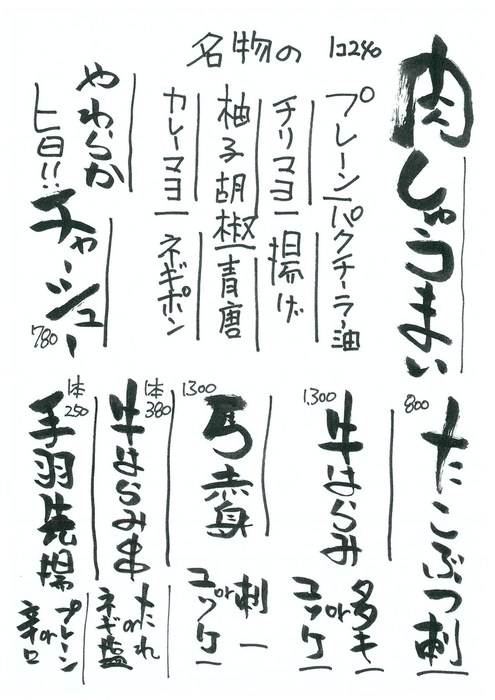 名物の 1コ240
肉しゅうまい
プレーン
パクチーラー油
チリマヨ
揚げ
柚子胡椒
青唐
カレーマヨ
ネギポン
やわらか
旨!!
チャーシュー
780
800
たこぶつ刺
1,300
牛はらみ
タタキ
or
ユッケ
1,300
馬赤身
刺
or
ユッケ
1本
380
牛はらみ串
たれ
or
ネギ塩
1本
250
手羽先揚
プレーン
or
辛口